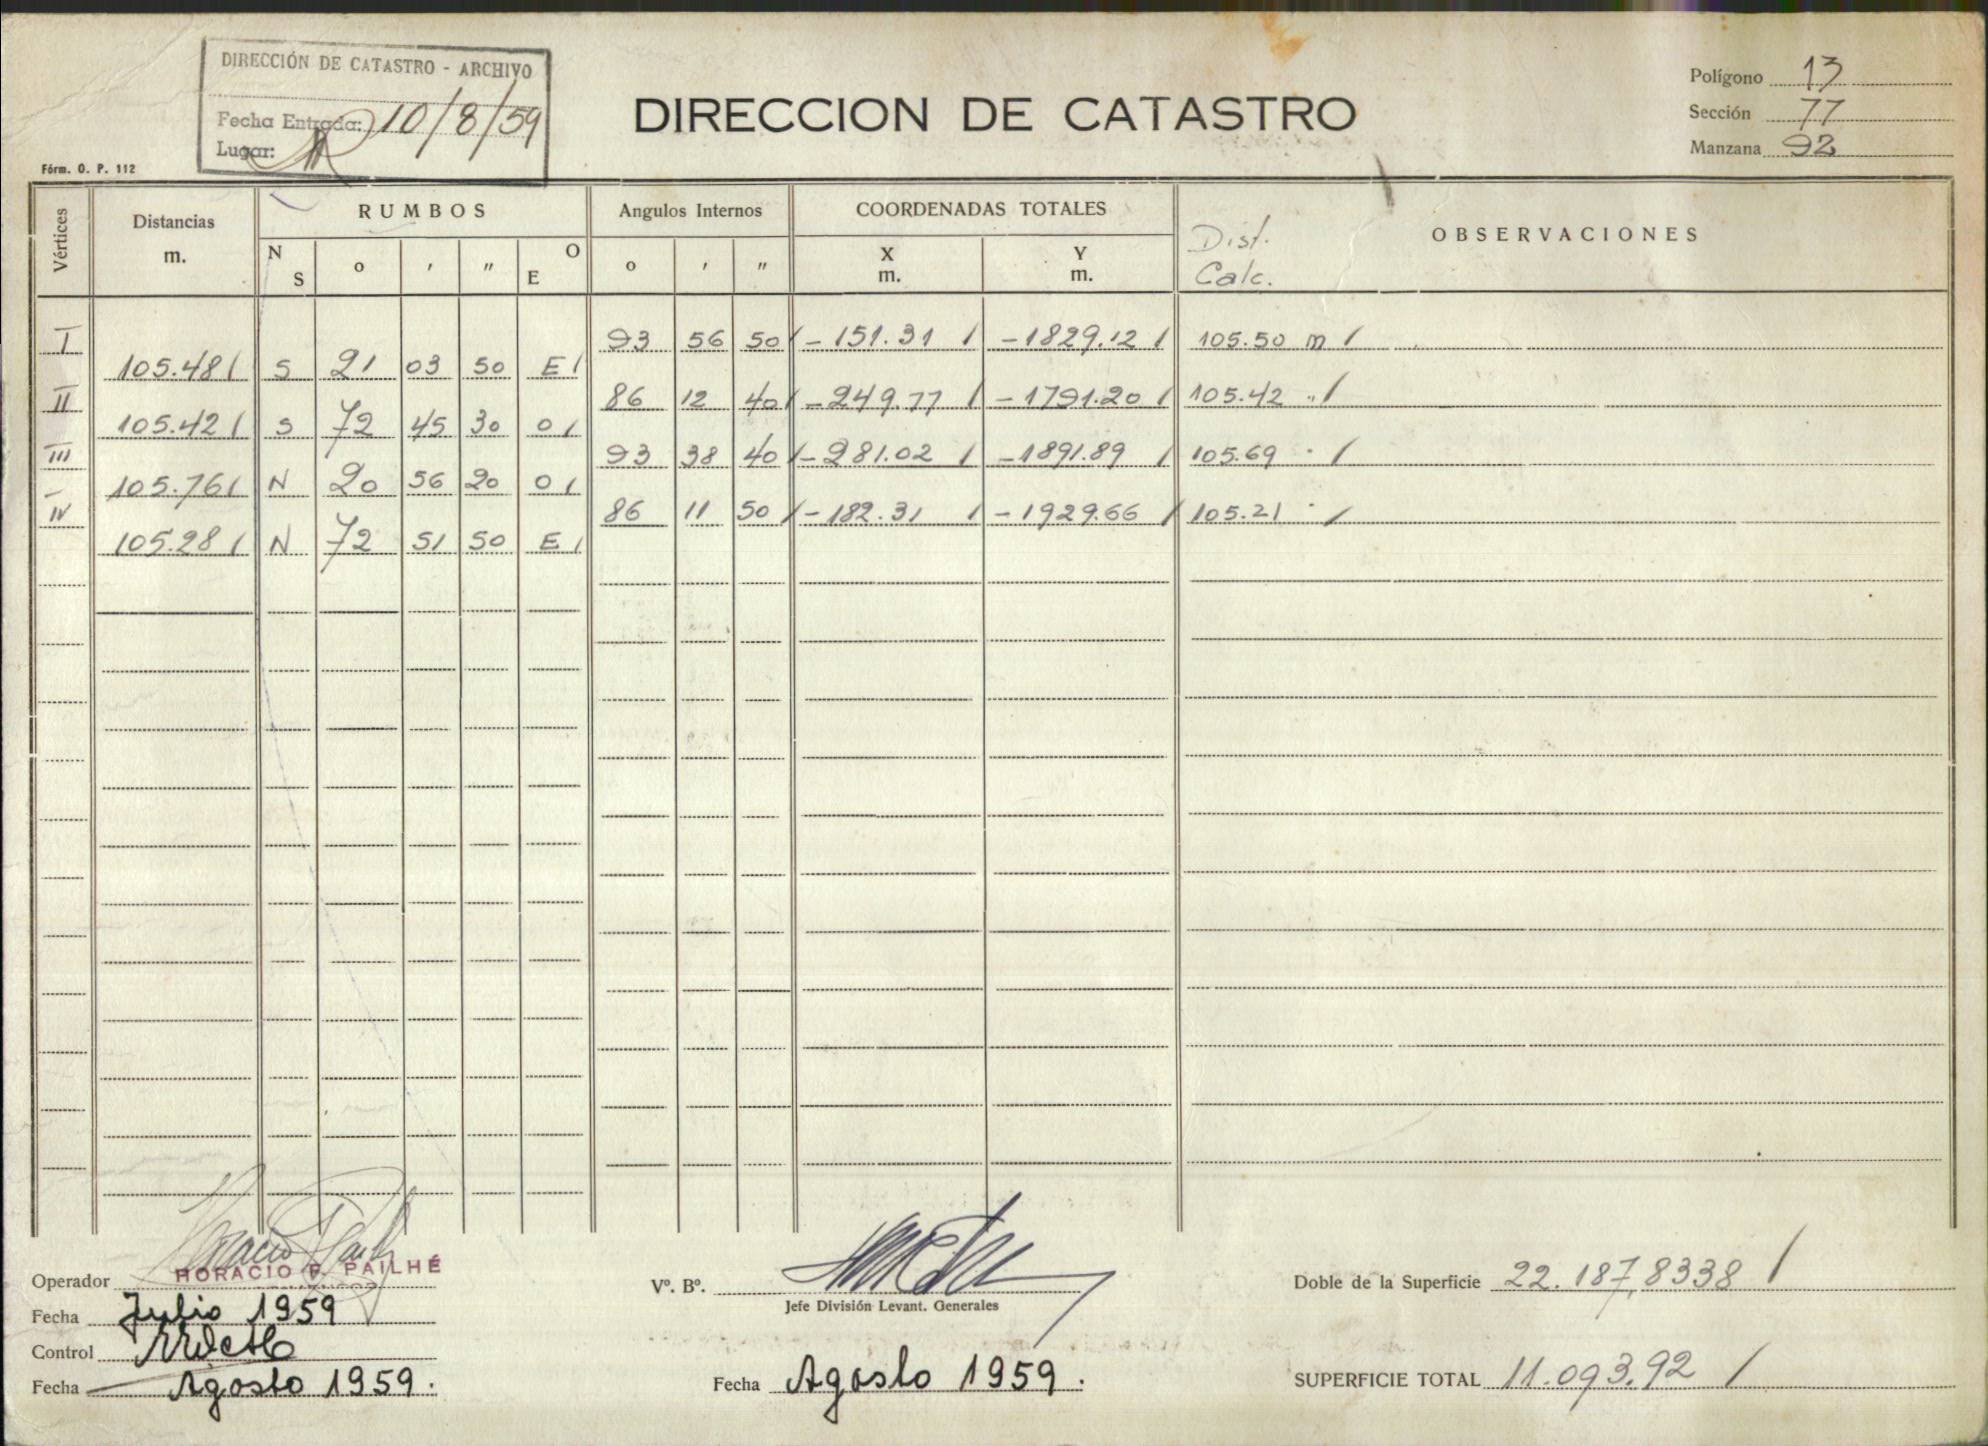 DIRECCIÓN DE CATASTRO - ARCHIVO
Fecha Entrada: 10/8/59
Lugar:
Fórm. O. P. 112
DIRECCION DE CATASTRO
Polígono 13
Sección 77
Manzana 92
Vértices
Distancias m.
RUMBOS
N S ° ' " O E
Angulos Internos
° ' "
COORDENADAS TOTALES
X m. Y m.
Dist. Calc.
OBSERVACIONES
I 93 56 50 / -151.31 / -1829.12 / 105.50 m /
105.48 / S 21 03 50 E /
II 86 12 40 / -249.77 / -1791.20 / 105.42 " /
105.42 / S 72 45 30 O /
III 93 38 40 / -281.02 / -1891.89 / 105.69 " /
105.76 / N 20 56 20 O /
IV 86 11 50 / -182.31 / -1929.66 / 105.21 " /
105.28 / N 72 51 50 E /
Operador HORACIO P. PAILHÉ
Fecha Julio 1959
Control
Fecha Agosto 1959.
Vº. Bº.
Jefe División Levant. Generales
Fecha Agosto 1959.
Doble de la Superficie 22.187,8338 /
SUPERFICIE TOTAL 11.093.92 /